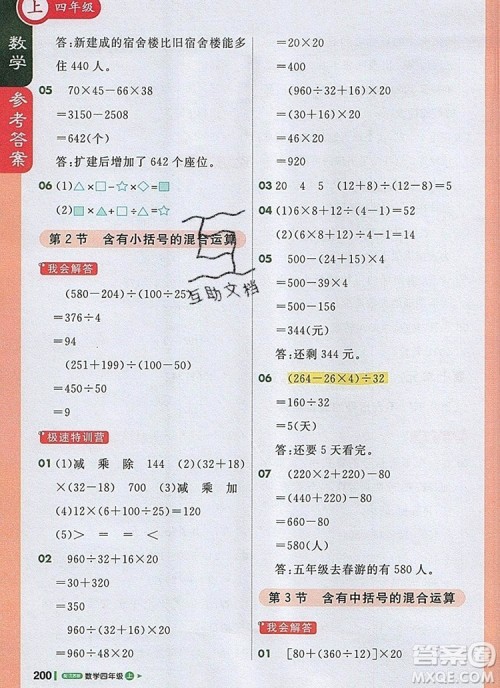 上 四年级
数学
参考答案
答:新建成的宿舍楼比旧宿舍楼能多
住 440 人。
05 70×45－66×38
＝3150－2508
＝642(个)
答:扩建后增加了 642 个座位。
06 (1)△×□－☆×◇＝□
(2)□×☆－◇÷△
第 2 节 含有小括号的混合运算
我会解答
(580－204)÷(100÷25)
＝376÷4
＝94
(251＋199)÷(150÷3)
＝450÷50
＝9
极速特训营
01 (1)减 乘 除 144 (2)(32＋18)
×(32－18) (3)减 乘 加
(4)12×(6＋100÷25) ＝160
(5)＞ ＝ ＝ ＜
02 960÷32＋16×20
＝30＋16×20
＝30＋320
＝350
960÷(32＋16)×20
＝960÷48×20
＝20×20
＝400
(960÷32＋16)×20
＝(30＋16)×20
＝46×20
＝920
03 20 4 5 (12＋8)÷(12－8)＝5
04 (1)6×8＋12÷(9－6)＝52
(2)(6×8＋12)÷(9－6)＝20
05 500－(24＋15)×4
＝500－39×4
＝500－156
＝344(元)
答:还剩 344 元。
06 (264－26×4)÷32
＝160÷32
＝5(天)
答:还要 5 天看完。
07 (220×2＋220)－80
＝(440＋220)－80
＝660－80
＝580(人)
答:五年级去春游的有 580 人。
第 3 节 含有中括号的混合运算
我会解答
01 [80＋(360÷12)]×4
互助文档
200 数学四年级 上
答案圈